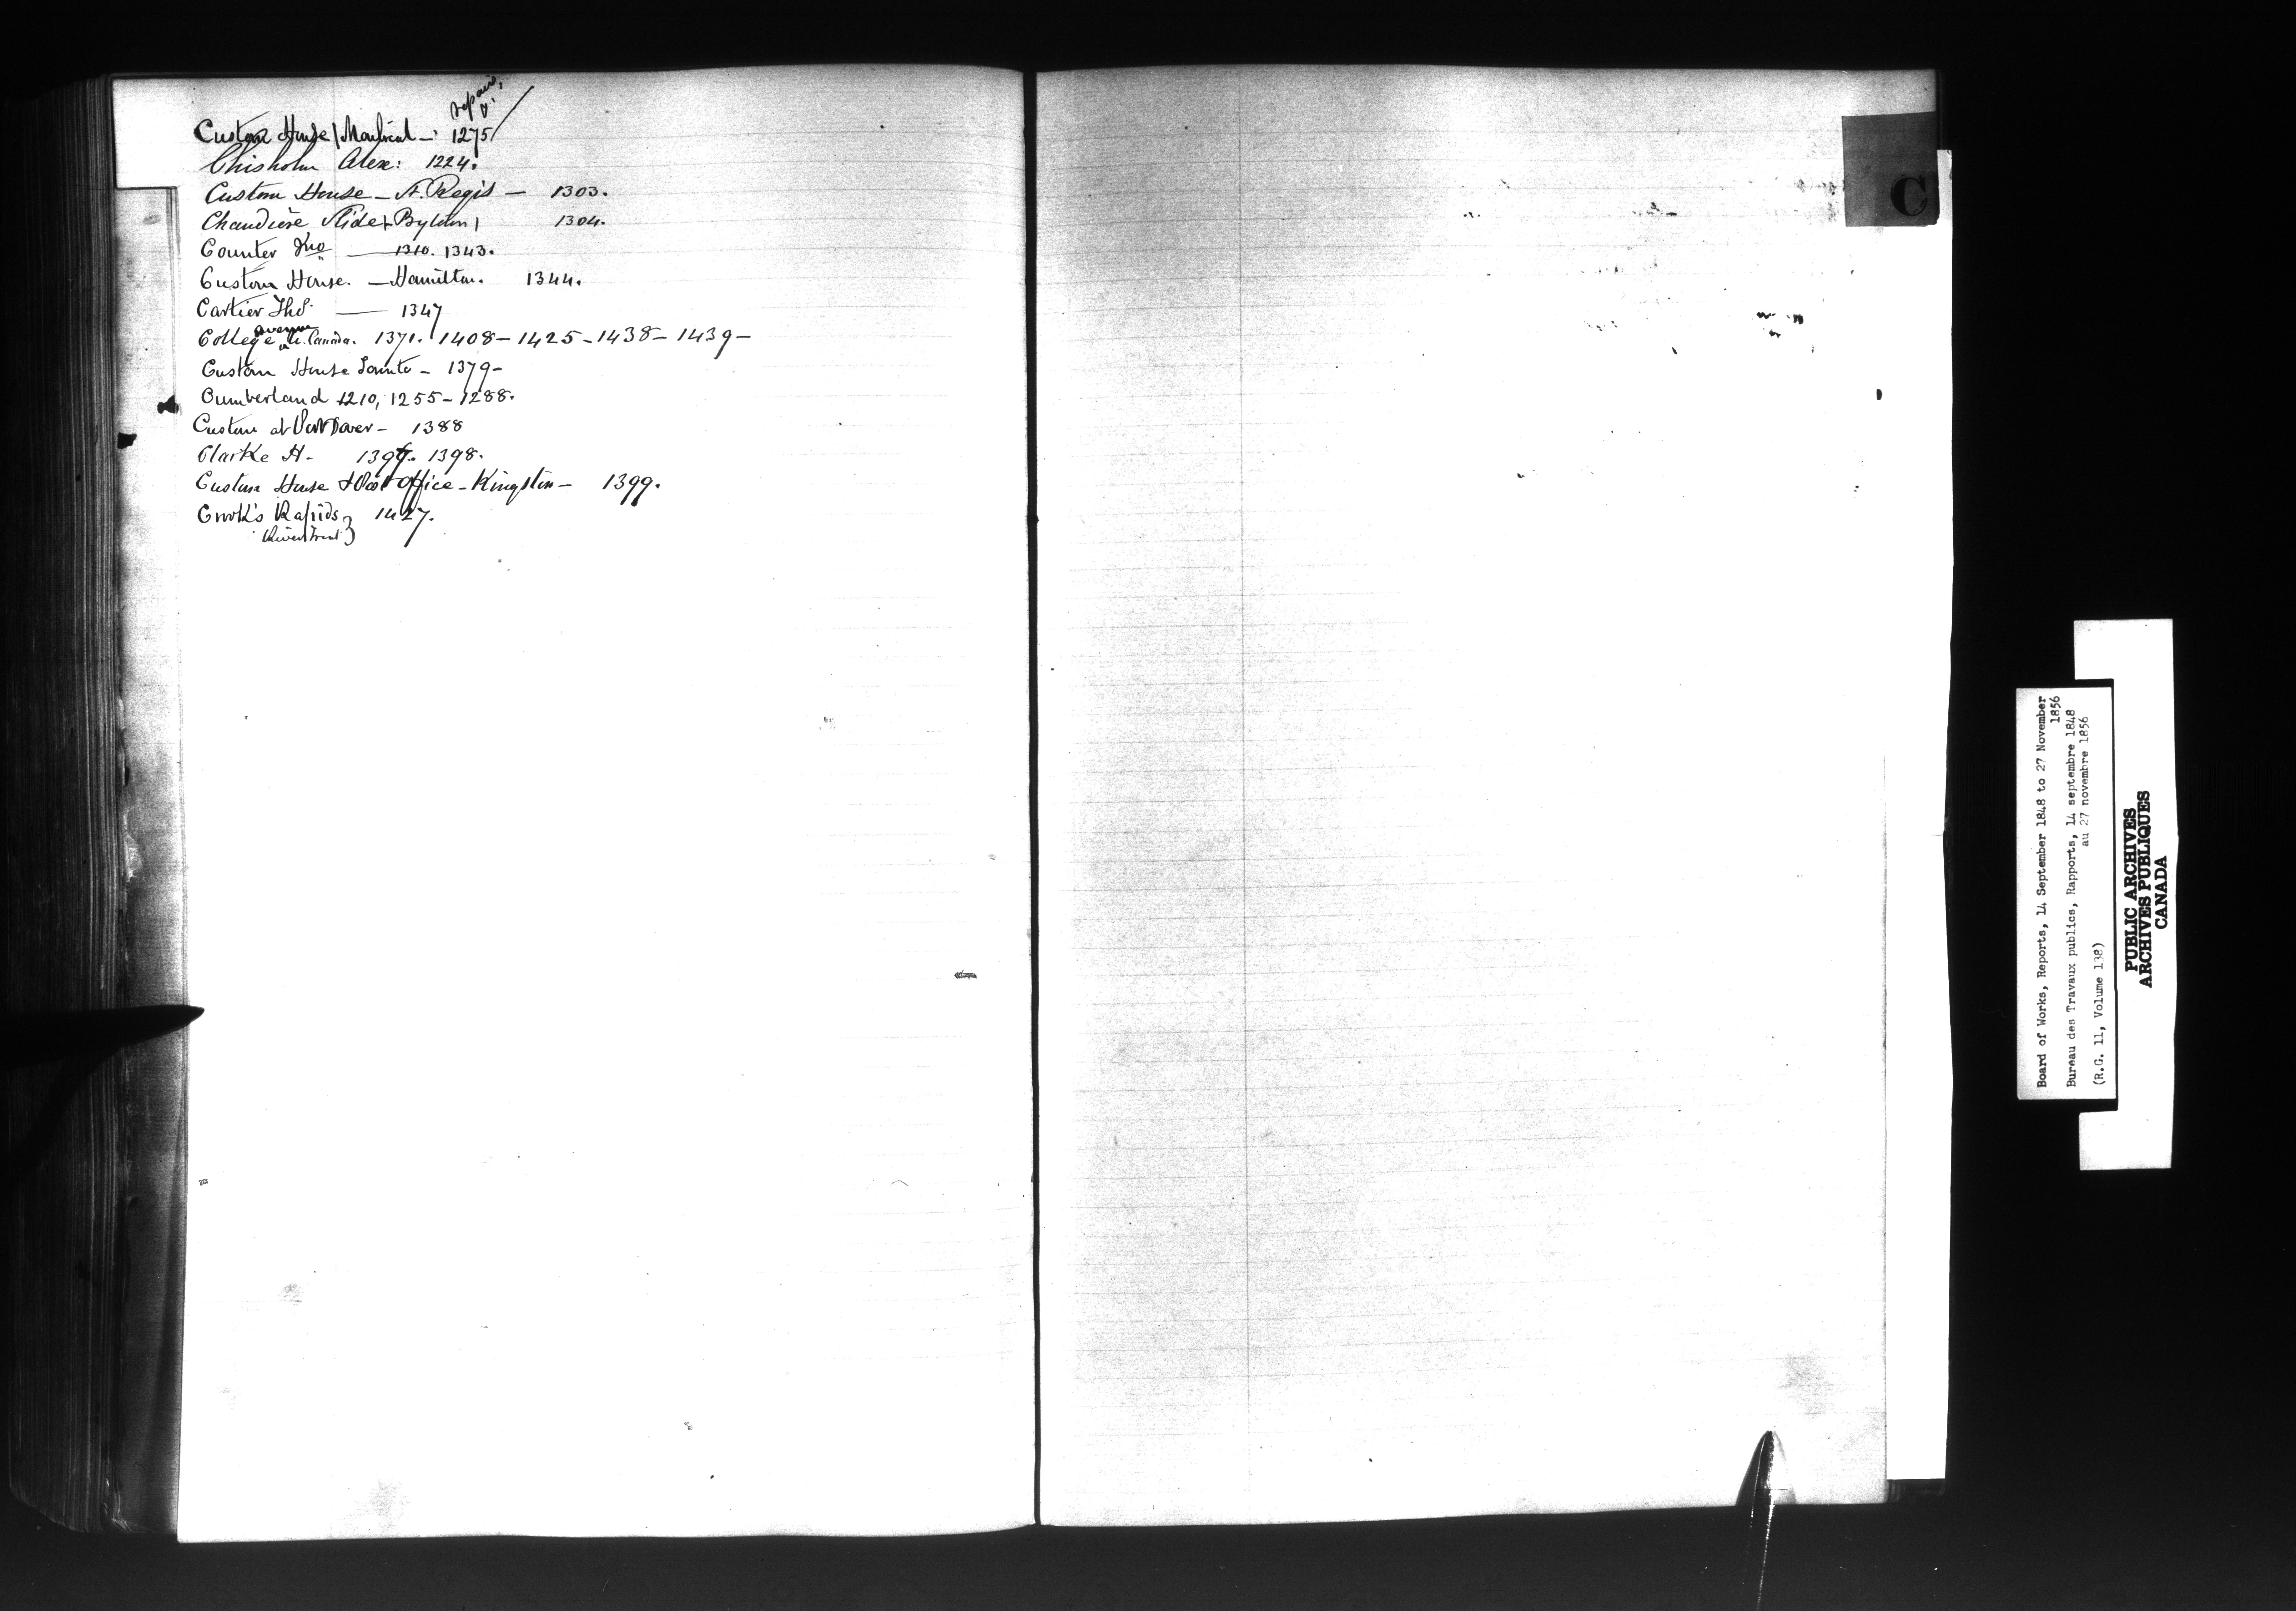 repairs,
Custom House / Montreal - 1275/
Chisholm Alex: 1224.
Custom House - St. Regis - 1303.
Chaudière Slide (Bytown) 1304.
Counter Jno — 1310. 1343.
Custom House. — Hamilton. 1344.
Cartier Thos. — 1347
avenue
College U. Canada. 1371. 1408 - 1425 - 1438 - 1439 -
Custom House Toronto - 1379 -
Cumberland 1210, 1255 - 1288.
Custom at Port Dover - 1388
Clarke H - 1397. 1398.
Custom House & Post office - Kingston - 1399.
Crook's Rapids } 1427.
(River Trent)
C
Board of Works, Reports, 14 September 1848 to 27 November
1856
Bureau des Travaux publics, Rapports, 14 septembre 1848
au 27 novembre 1856
(R.G. 11, Volume 138)
PUBLIC ARCHIVES
ARCHIVES PUBLIQUES
CANADA